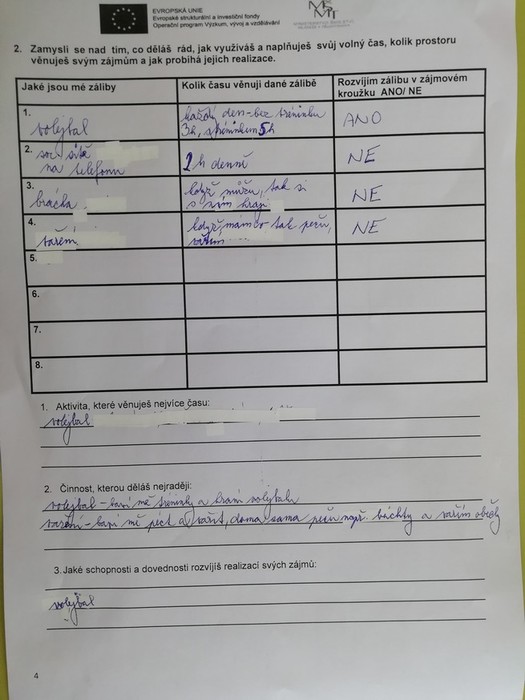 EVROPSKÁ UNIE
Evropské strukturální a investiční fondy
Operační program Výzkum, vývoj a vzdělávání
2. Zamysli se nad tím, co děláš rád, jak využíváš a naplňuješ svůj volný čas, kolik prostoru
věnuješ svým zájmům a jak probíhá jejich realizace.
Jaké jsou mé záliby
Kolik času věnuji dané zálibě
Rozvíjím zálibu v zájmovém
kroužku ANO/ NE
1.
volejbal
každý den - bez tréninku
3h, s tréninkem 5h
ANO
2. soc. sítě
na telefonu
2h denně
NE
3.
brácha
když můžu, tak si
s ním hraji
NE
4.
vařem
když mám tak peču,
vařím
NE
5.
6.
7.
8.
1. Aktivita, které věnuješ nejvíce času:
volejbal
2. Činnost, kterou děláš nejraději:
volejbal - baví mě tréninky a hraní volejbalu
vaření - baví mě péct a vařit, doma sama peču např. buchty a vařím obědy
3. Jaké schopnosti a dovednosti rozvíjíš realizací svých zájmů:
volejbal
4